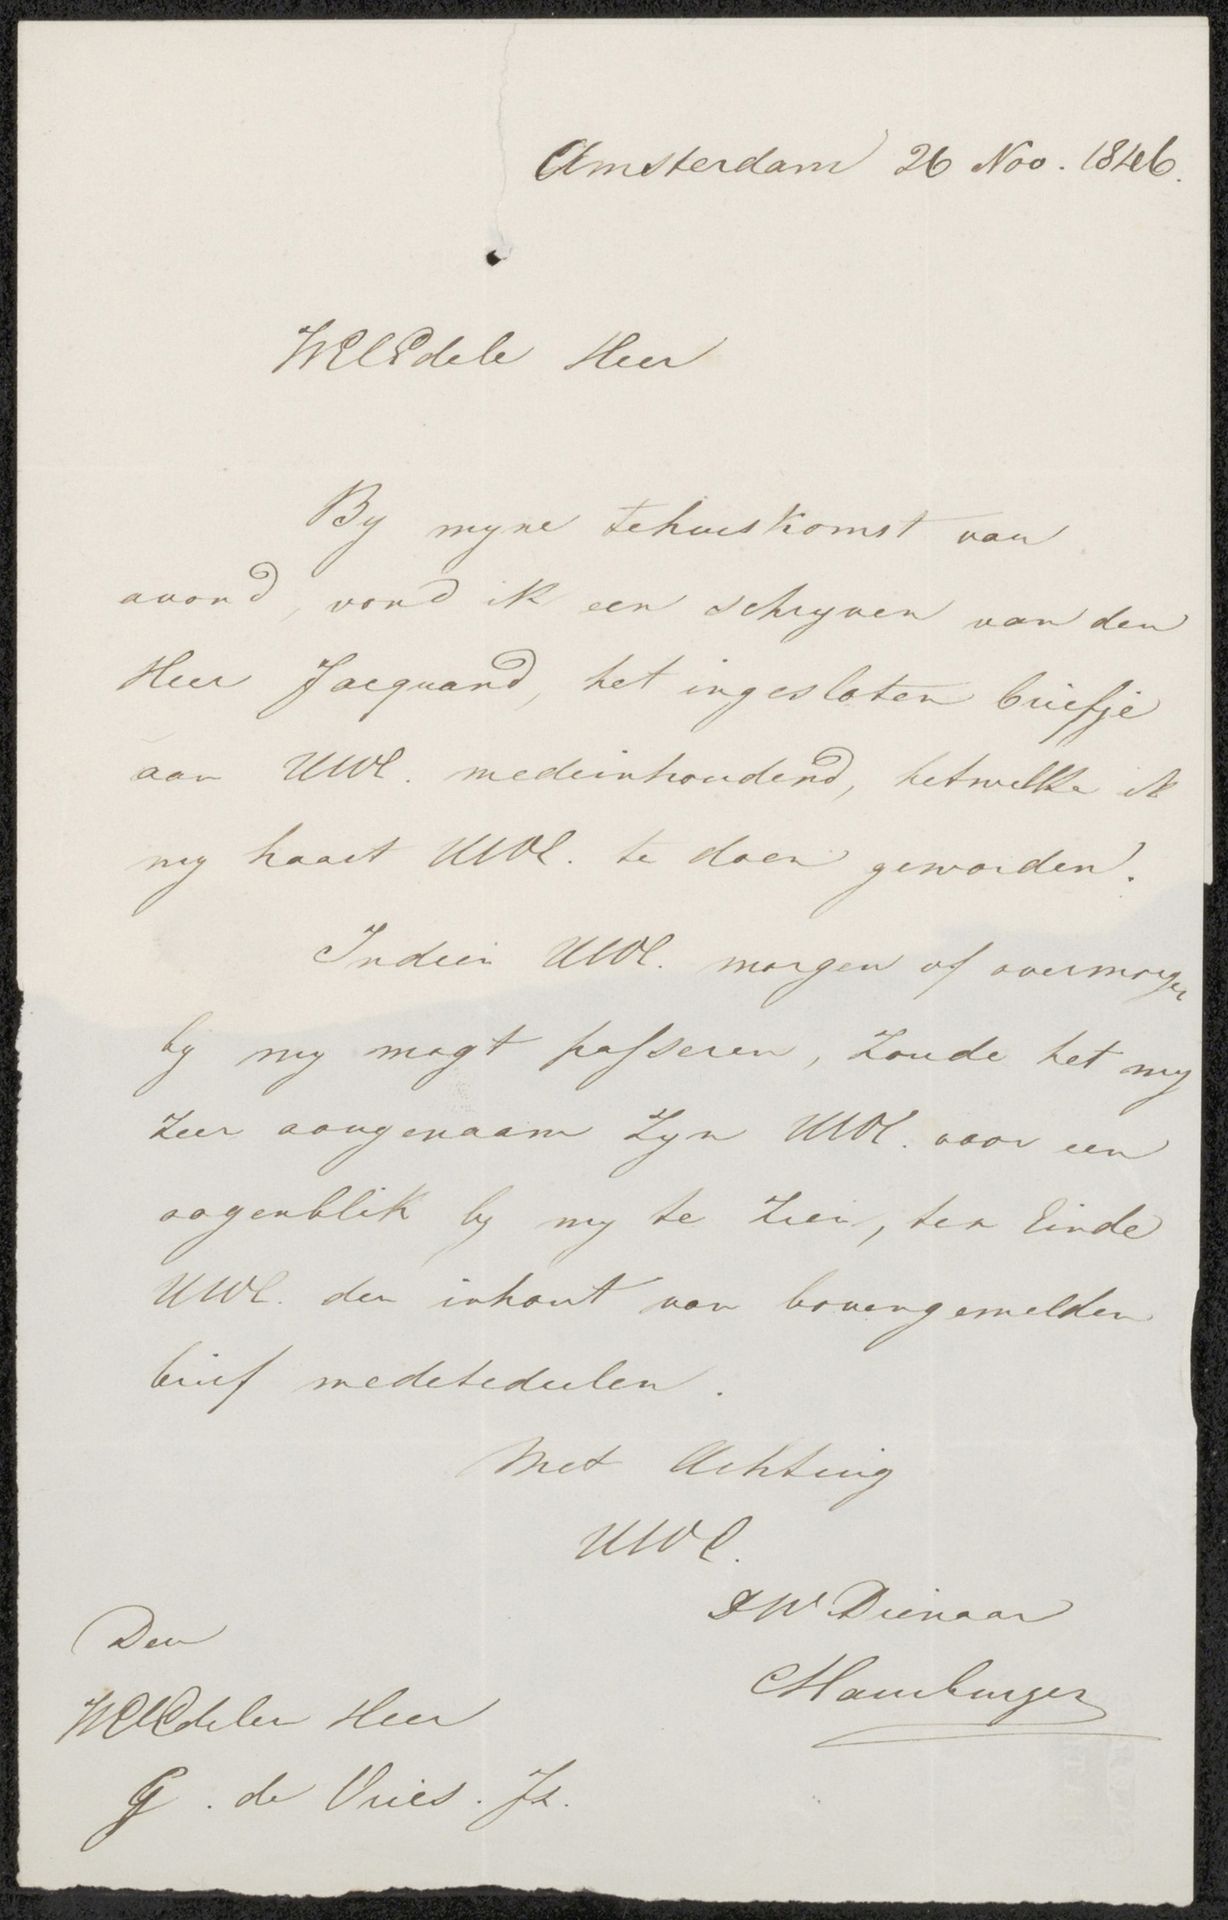 Amsterdam 26 Nov. 1846.
WelEdele Heer
By myne tehuiskomst van
avond, vond ik een schryven van den
Heer Jacquand, het ingesloten briefje
aan UWE. medeinhoudend, hetwelke ik
my haast UWE. te doen geworden.
Indien UWE. morgen of overmorgen
by my mogt passeren, zoude het my
zeer aangenaam zyn UWE. voor een
oogenblik by my te zien, ten Einde
UWE. den inhout van bovengemelden
brief medetedeelen.
Met Achting
UWE.
DW Dienaar
CHamburger
Den
WelEdelen Heer
G. de Vries. Jz.